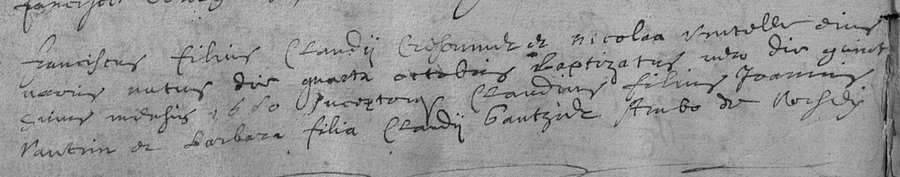 Franciscus filius Claudij et Nicolaa eius
uxoris natus die quarta octobris baptizatus vero die quint
eiusdem mensis 1660 susceptores Claudius filius Joannis
Vautrin et Barbara filia Claudij Gautzide Ambo de